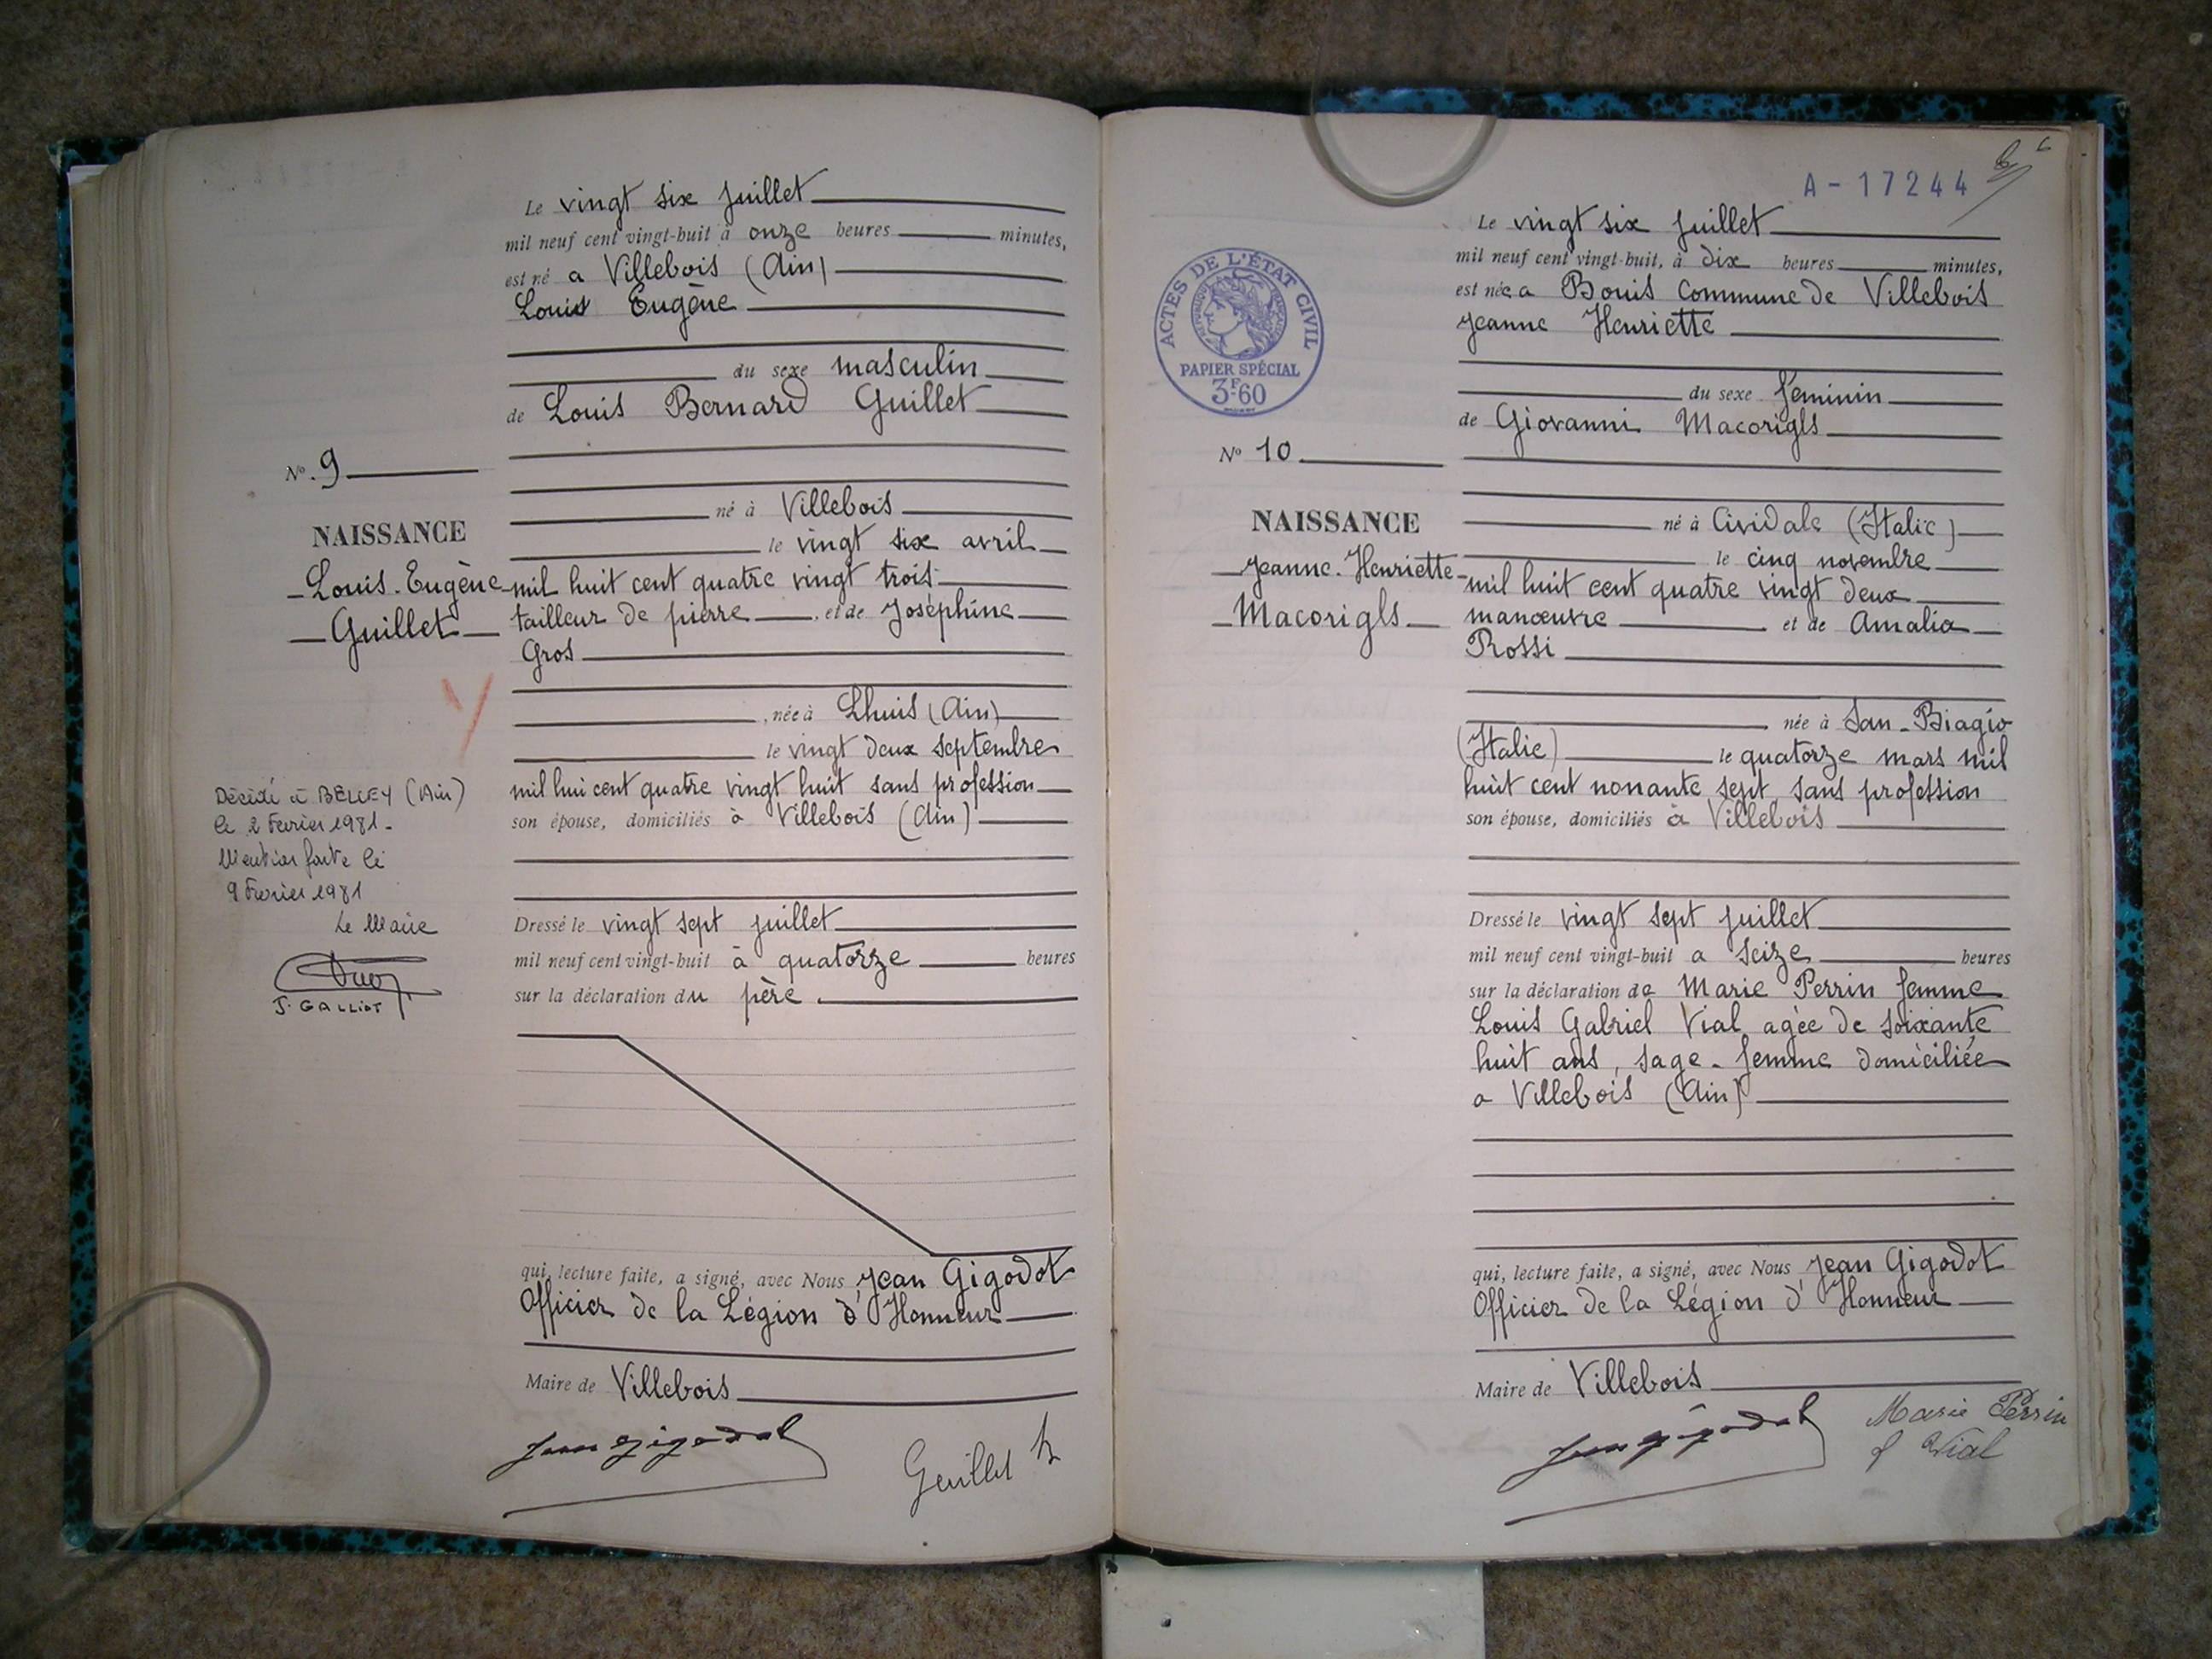 Le vingt six juillet
mil neuf cent vingt-huit à onze heures minutes,
est né a Villebois (Ain)
Louis Eugène
du sexe masculin
de Louis Bernard Guillet
N° 9
né à Villebois
NAISSANCE
le vingt six avril
Louis-Eugène
Guillet
mil huit cent quatre vingt trois
tailleur de pierre et de Joséphine
Gros
née à Lhuis (Ain)
le vingt deux septembre
mil hui cent quatre vingt huit sans profession
son épouse, domiciliés à Villebois (Ain)
Décédé à BELLEY (Ain)
le 2 Fevrier 1981-
Mention faite le
9 Fevrier 1981
Le Maire
J. GALLIOT
Dressé le vingt sept juillet
mil neuf cent vingt-huit à quatorze heures
sur la déclaration du père
qui, lecture faite, a signé, avec Nous Jean Gigodot
Officier de la Légion d'Honneur
Maire de Villebois
Jean Gigodot
Guillet
A-17244
Le vingt six juillet
mil neuf cent vingt-huit, à dix heures minutes,
est née a Bouis Commune de Villebois
Jeanne Henriette
ACTES DE L'ÉTAT CIVIL
PAPIER SPÉCIAL
3F60
du sexe feminin
de Giovanni Macorigls
N° 10
né à Cividale (Italie)
NAISSANCE
le cinq novembre
Jeanne-Henriette
Macorigls
mil huit cent quatre vingt deux
manœuvre et de Amalia
Rossi
née à San-Biagio
(Italie) le quatorze mars mil
huit cent nonante sept sans profession
son épouse, domiciliés à Villebois
Dressé le vingt sept juillet
mil neuf cent vingt-huit a seize heures
sur la déclaration de Marie Perrin femme
Louis Gabriel Vial agée de soixante
huit ans, sage-femme domiciliée
a Villebois (Ain)
qui, lecture faite, a signé, avec Nous Jean Gigodot
Officier de la Légion d'Honneur
Maire de Villebois
Jean Gigodot
Marie Perrin
f Vial